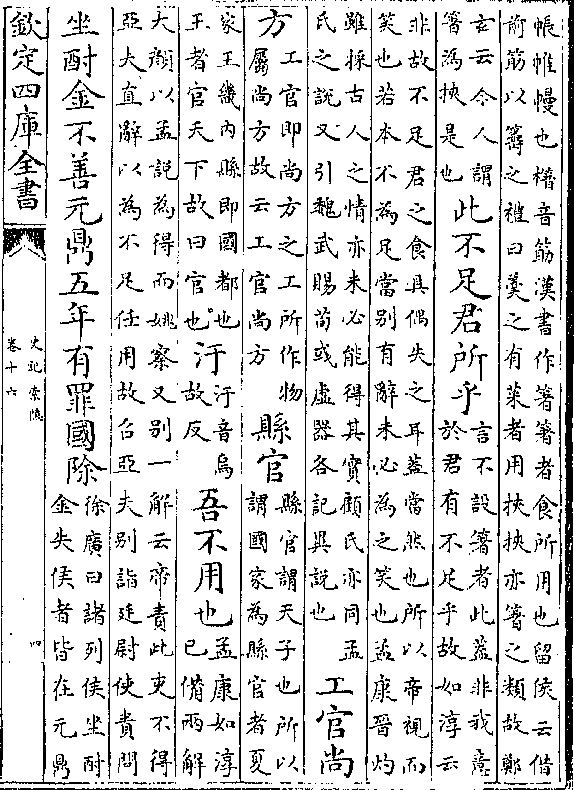 帳帷幔也櫡音筯漢書作箸箸者食所用也留侯云借
前筯以籌之禮曰羹之有菜者用挾挾亦箸之類故鄭
玄云今人謂
箸為挾是也
此不足君所乎
言不設箸者此蓋非我意
於君有不足乎故如淳云
非故不足君之食具偶失之耳蓋當然也所以帝視而
笑也若本不為足當別有辭未必為之笑也孟康晉灼
雖探古人之情亦未必能得其實顧氏亦同孟
氏之說又引魏武賜荀彧虛器各記異說也
工官尚
方
工官即尚方之工所作物
屬尚方故云工官尚方
縣官
縣官謂天子也所以
謂國家為縣官者夏
家王幾內縣即國都也
王者官天下故曰官也
汙
汙音烏
故反
吾不用也
孟康如淳
已備兩解
大顏以孟說為得而姚察又別一解云帝責此吏不得
亞夫直辭以為不足任用故召亞夫別詣廷尉使責問
坐酎金不善元鼎五年有罪國除
徐廣曰諸列侯坐酎
金失侯者皆在元鼎
欽定四庫全書
史記索隱
卷十六
四